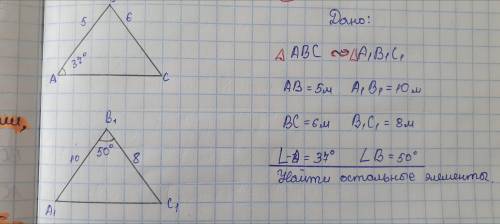 5
6
A
37°
C
B₁
50°
10
8
A₁
C₁
Дано:
△ABC ∾ △A₁B₁C₁
AB = 5м A₁B₁ = 10м
BC = 6м B₁C₁ = 8м
∠A = 37° ∠B = 50°
Найти остальные элементы.